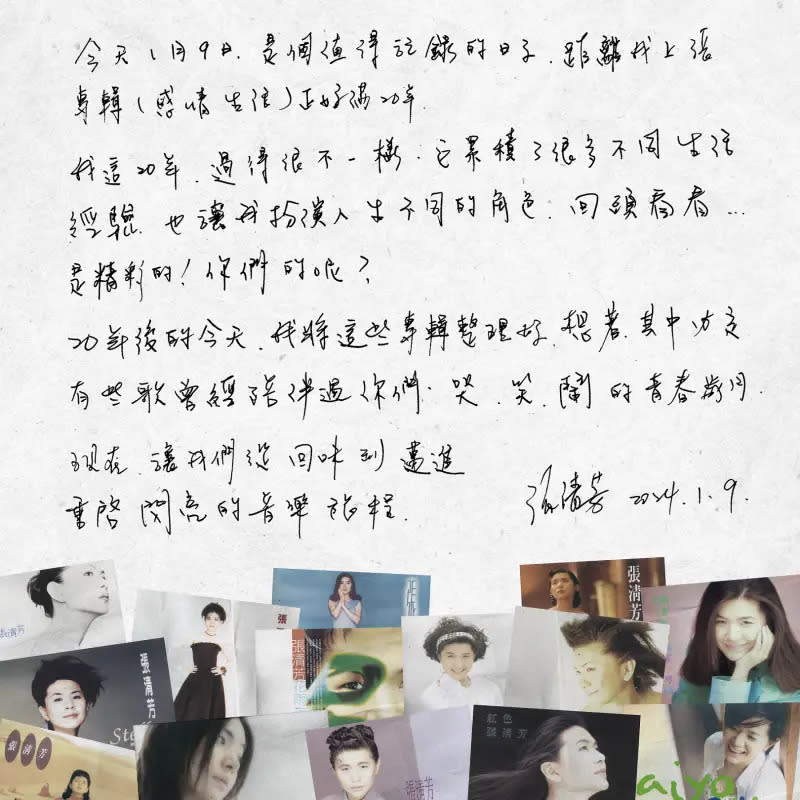 今天1月9日、是個值得記錄的日子、距離我上張
專輯(感情生活)正好滿20年.
我這20年、過得很不一樣、它累積了很多不同生活
經驗、也讓我扮演人生不同的角色、回頭看看...
是精彩的!你們的呢?
20年後的今天、我將這些專輯整理好、想著、其中
有些歌曾經陪伴過你們、哭、笑、鬧的青春歲月.
現在、讓我們從回味到邁進
重啓閃亮的音樂旅程.
張清芳 2024.1.9.
張清芳
張
張清芳
張清芳
張清芳
張清芳
張清芳
紅色
張清芳
aiyo.